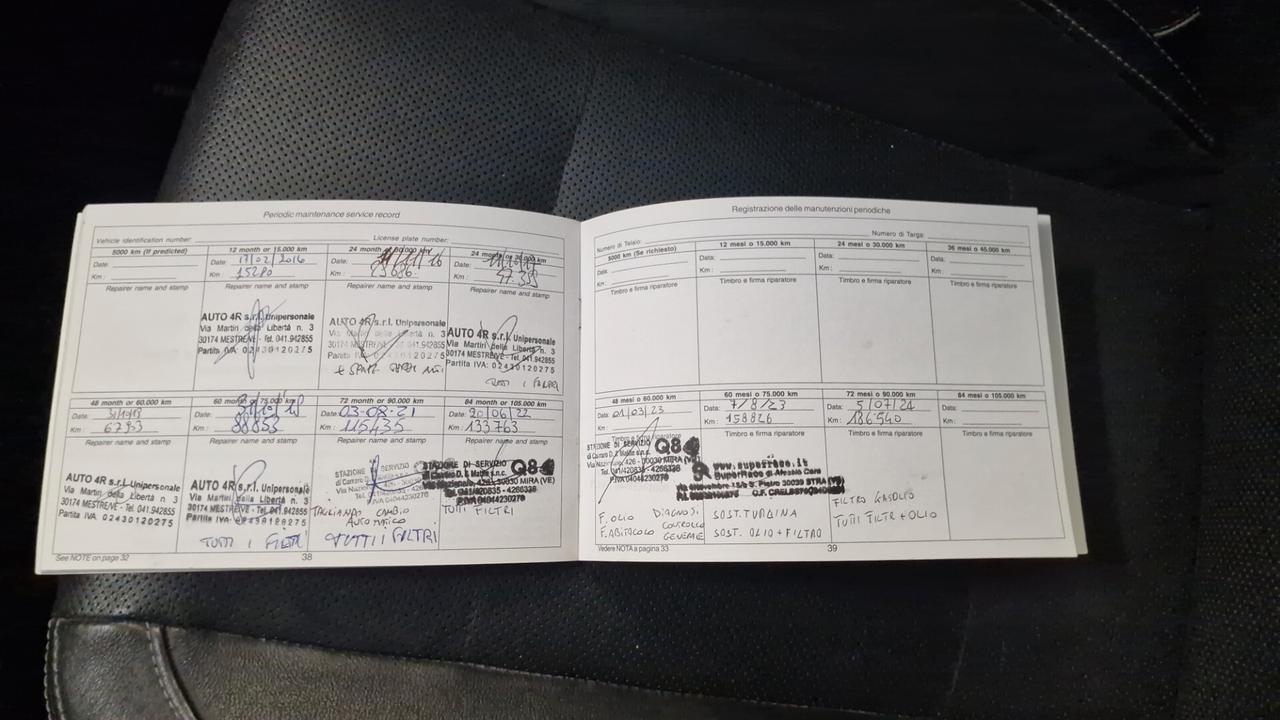 Periodic maintenance service record
Vehicle identification number: License plate number:
5000 km (If predicted)
Date:
Km :
Repairer name and stamp
12 month or 15.000 km
Date: 17/02/2016
Km : 15280
Repairer name and stamp
AUTO 4R s.r.l. Unipersonale
Via Martiri della Libertà n. 3
30174 MESTRE/VE - Tel. 041.942855
Partita IVA: 02430120275
24 month or 30.000 km
Date:
Km :
Repairer name and stamp
AUTO 4R s.r.l. Unipersonale
Via Martiri della Libertà n. 3
30174 MESTRE/VE - Tel. 041.942855
Partita IVA: 02430120275
24 month or
Date:
Km :
Repairer name and stamp
AUTO 4R s.r.l. Unipersonale
Via Martiri della Libertà n. 3
30174 MESTRE/VE - Tel. 041.942855
Partita IVA: 02430120275
TUTTI I FILTRI
48 month or 60.000 km
Date: 31/10/18
Km :
Repairer name and stamp
AUTO 4R s.r.l. Unipersonale
Via Martiri della Libertà n. 3
30174 MESTRE/VE - Tel. 041.942855
Partita IVA: 02430120275
60 month or 75.000 km
Date:
Km : 88853
Repairer name and stamp
AUTO 4R s.r.l. Unipersonale
Via Martiri della Libertà n. 3
30174 MESTRE/VE - Tel. 041.942855
Partita IVA: 02430120275
TUTTI I FILTRI
72 month or 90.000 km
Date: 03-08-21
Km : 115435
Repairer name and stamp
STAZIONE DI SERVIZIO
TAGLIANDO CAMBIO
AUTOMATICO
TUTTI I FILTRI
84 month or 105.000 km
Date: 20/06/22
Km : 133763
Repairer name and stamp
STAZIONE DI SERVIZIO Q8
di Carraro D. & Mattia s.n.c.
Via Nazionale, 426 - 30030 MIRA (VE)
Tel. 041/420835 - 4266336
P.IVA 04044230276
TUTTI FILTRI
See NOTE on page 32
38
Registrazione delle manutenzioni periodiche
Numero di Telaio: Numero di Targa:
5000 km (Se richiesto)
Data:
Km :
Timbro e firma riparatore
12 mesi o 15.000 km
Data:
Km :
Timbro e firma riparatore
24 mesi o 30.000 km
Data:
Km :
Timbro e firma riparatore
36 mesi o 45.000 km
Data:
Km :
Timbro e firma riparatore
48 mesi o 60.000 km
Data: 01/03/23
Km :
Timbro e firma riparatore
STAZIONE DI SERVIZIO Q8
di Carraro D. & Mattia s.n.c.
Via Nazionale, 426 - 30030 MIRA (VE)
Tel. 041/420835 - 4266336
P.IVA 04044230276
F. OLIO DIAGNOSI
F. ABITACOLO CONTROLLO
GENERALE
60 mesi o 75.000 km
Data: 7/8/23
Km : 158826
Timbro e firma riparatore
www.superrace.it
SuperRace di Alessio Care
S. Pietro 30039 STRA (VE)
SOST. TURBINA
SOST. OLIO + FILTRO
72 mesi o 90.000 km
Data: 5/07/24
Km : 186540
Timbro e firma riparatore
FILTRO GASOLIO
TUTTI FILTRI + OLIO
84 mesi o 105.000 km
Data:
Km :
Timbro e firma riparatore
Vedere NOTA a pagina 33
39